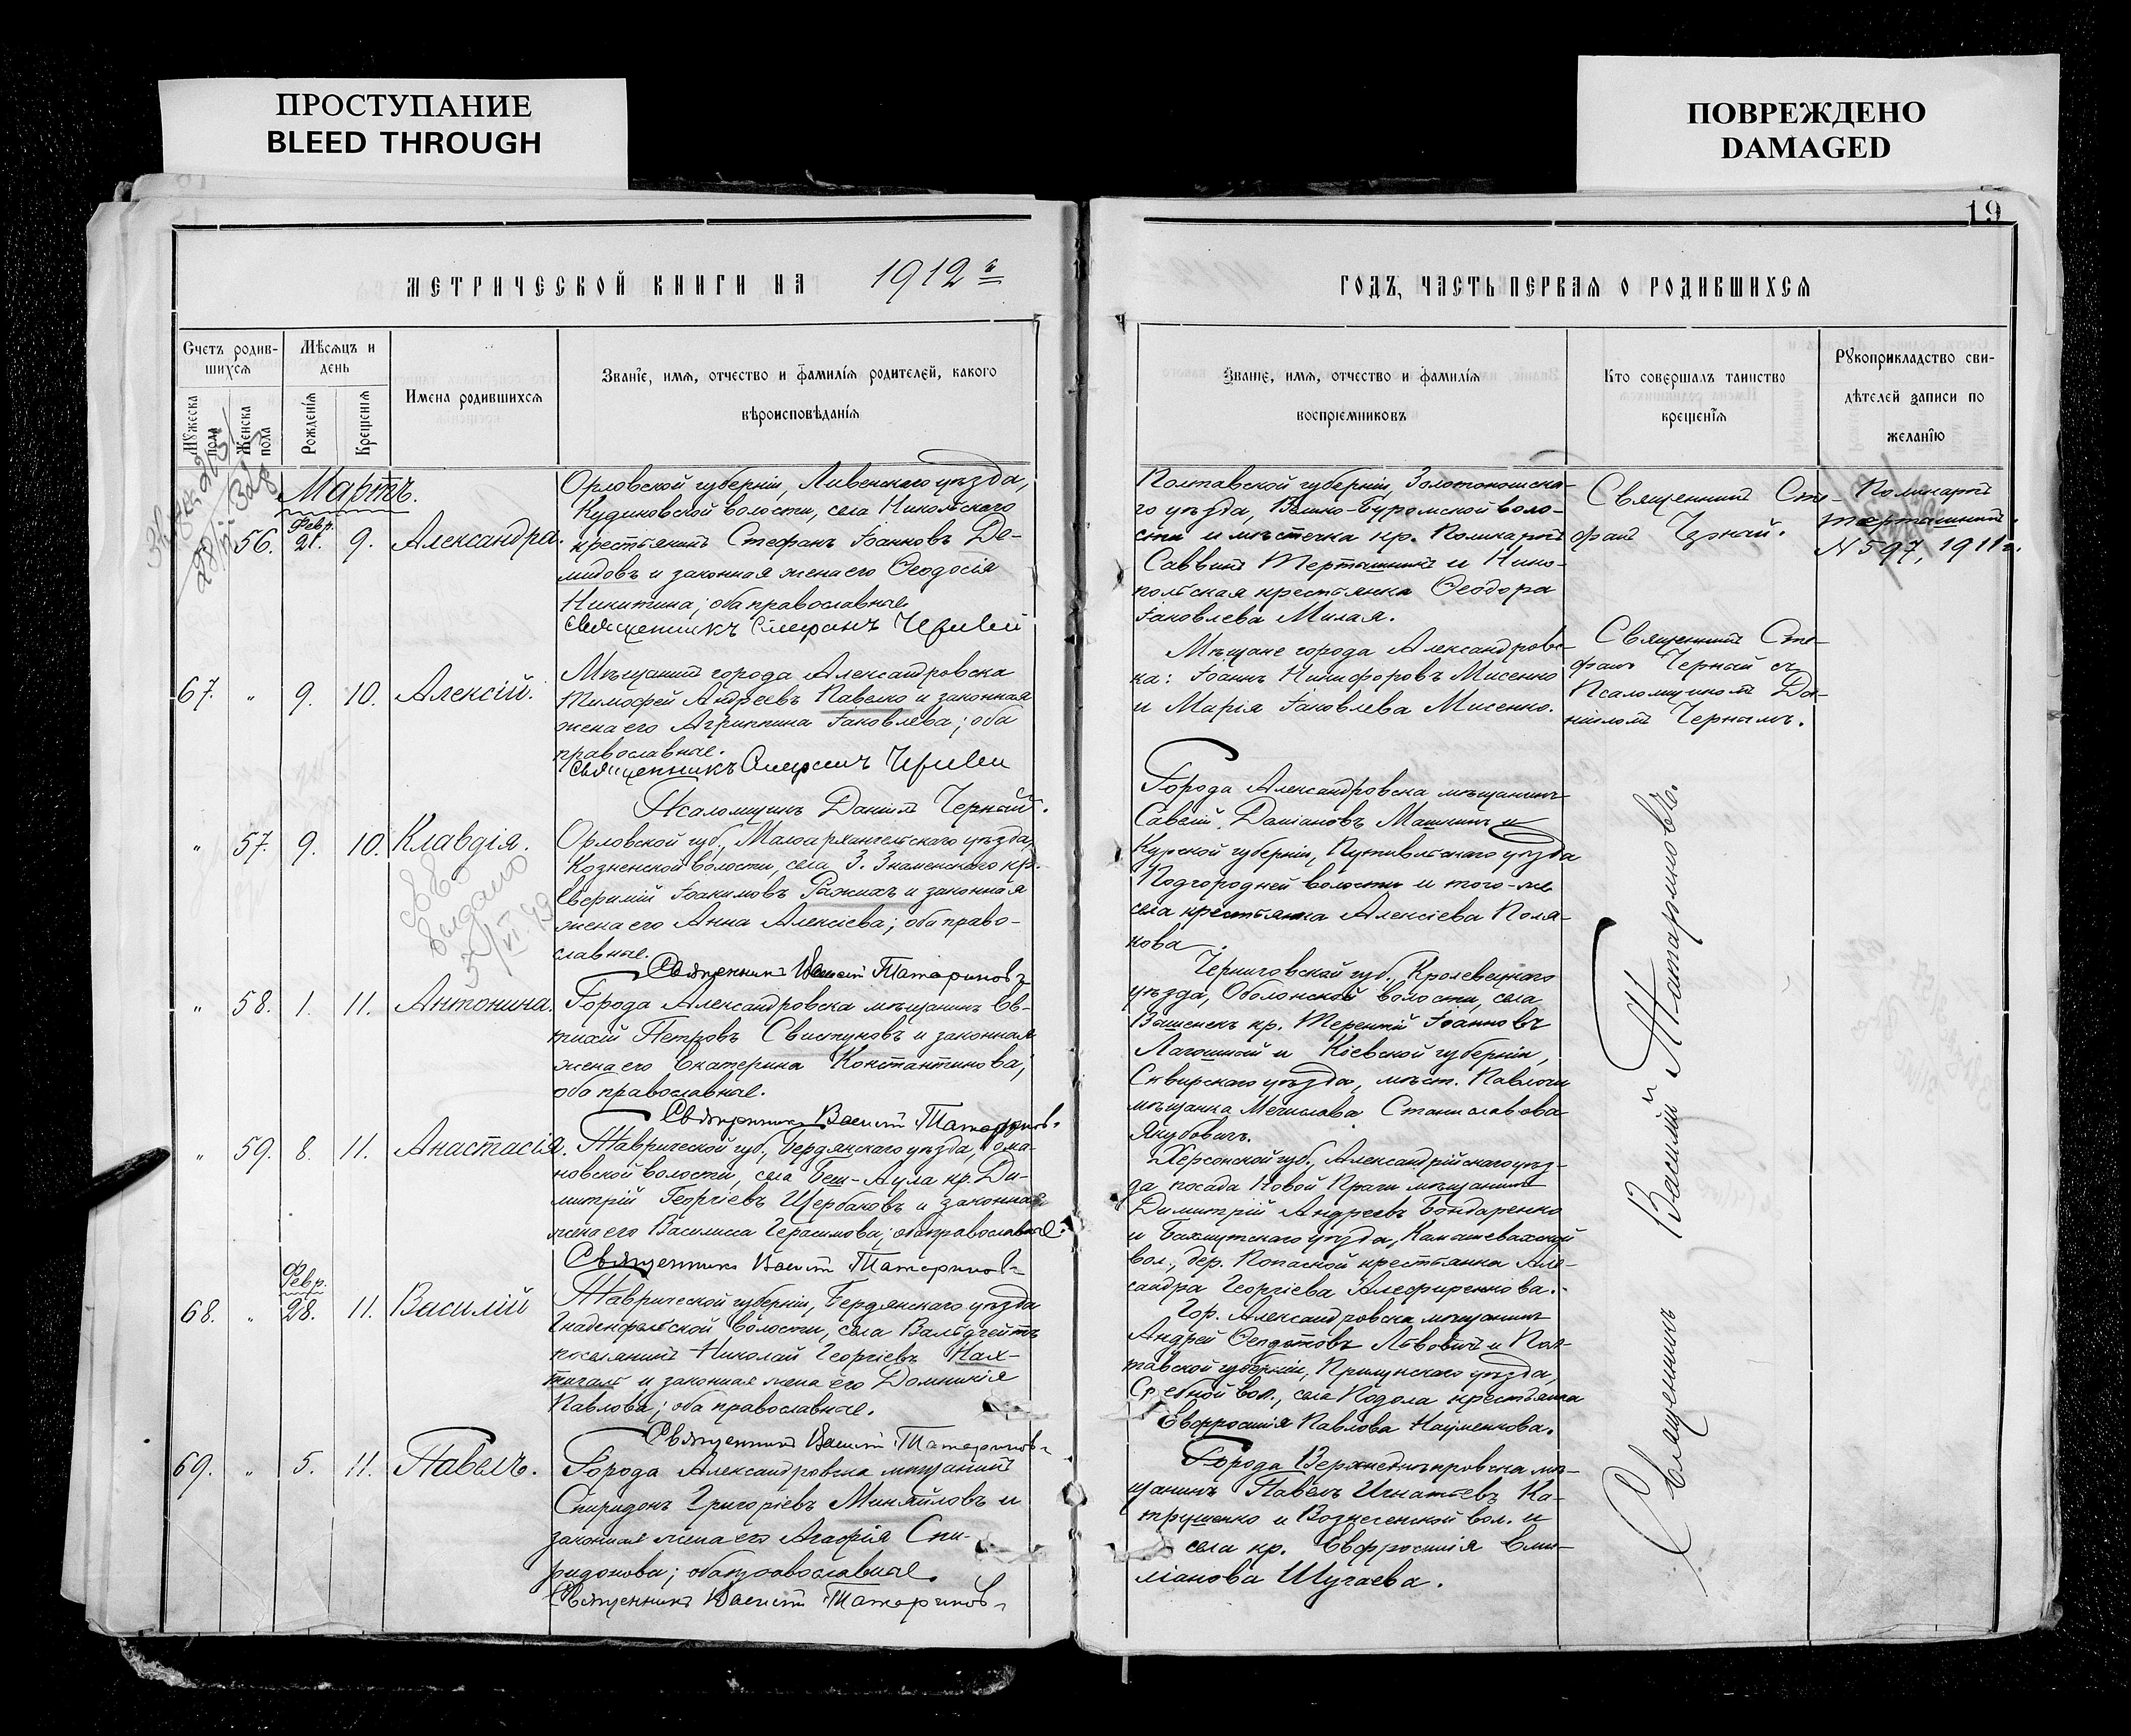 ПРОСТУПАНИЕ
BLEED THROUGH
ПОВРЕЖДЕНО
DAMAGED
19
МЕТРИЧЕСКОЙ КНИГИ НА 1912й
Счетъ родив-
шихся
Мѣсяцъ и
день
Имена родившихся
Званіе, имя, отчество и фамилія родителей, какого
вѣроисповѣданія
Мужеска
пола
Женска
пола
Рожденія
Крещенія
Мартъ.
56. Февр. 21. 9. Александра.
Орловской губерніи, Ливенскаго уѣзда,
Кудиновской волости, села Никольскаго
крестьянинъ Стефанъ Іоанновъ Де-
мидовъ и законная жена его Ѳеодосія
Никитина; оба православные.
Священникъ Стефанъ Черный
67. " 9. 10. Алексій.
Мѣщанинъ города Александровска
Тимофей Андреевъ Павелко и законная
жена его Агриппина Іаковлева; оба
православные.
Священникъ Стефанъ Черный
Псаломщикъ Даніилъ Черный.
" 57. 9. 10. Клавдія.
выдано
Орловской губ., Малоархангельскаго уѣзда,
Козненской волости, села З. Знаменского кр.
Евфимій Іоакимовъ и законная
жена его Анна Алексіева; оба право-
славные.
Священникъ Василій Татариновъ
" 58. 1. 11. Антонина.
Города Александровска мѣщанинъ Ев-
тихій Петровъ Свистуновъ и законная
жена его Екатерина Константинова;
оба православные.
Священникъ Василій Татариновъ
" 59. 8. 11. Анастасія.
Таврической губ., Бердянскаго уѣзда, Рома-
новской волости, села Беш-Аула кр. Ди-
митрій Георгіевъ Щербаковъ и законная
жена его Василисса Герасимова; оба православные.
Священникъ Василій Татариновъ
68. " Февр. 28. 11. Василій
Таврической губерніи, Бердянскаго уѣзда
Гнаденфельской волости, села Вальдгеймъ
поселянинъ Николай Георгіевъ Нах-
тигаль и законная жена его Домникія
Павлова; оба православные.
Священникъ Василій Татариновъ
69. " 5. 11. Павелъ.
Города Александровска мѣщанинъ
Спиридонъ Григоріевъ Миняйловъ и
законная жена его Агафія Спи-
ридонова; оба православные.
Священникъ Василій Татариновъ
ГОДЪ, ЧАСТЬ ПЕРВАЯ О РОДИВШИХСЯ
Званіе, имя, отчество и фамилія
воспріемниковъ
Кто совершалъ таинство
крещенія
Рукоприкладство сви-
дѣтелей записи по
желанію
Полтавской губерніи, Золотоношска-
го уѣзда, Велико-Буромской воло-
сти и мѣстечка кр. Поликарпъ
Саввинъ Терташный и Нико-
польская крестьянка Ѳеодора
Іаковлева Милая.
Священникъ Сте-
фанъ Черный.
Поликарпъ
Терташный.
N 597, 1911 г.
Мѣщане города Александровс-
ка: Іоаннъ Никифоровъ Мисенко
и Марія Іаковлева Мисенко.
Священникъ Сте-
фанъ Черный съ
Псаломщикомъ Да-
ніиломъ Чернымъ.
Города Александровска мѣщанинъ
Савелій Даміановъ Машкинъ и
Курской губерніи, Путивльскаго уѣзда
Подгородней волости и того-же
села крестьянка Алексіева Поля-
кова.
Черниговской губ., Кролевецкаго
уѣзда, Оболонской волости, села
кр. Терентій Іоанновъ
и Кіевской губерніи,
Сквирскаго уѣзда, мѣст. Павлочи
мѣщанка Мечислава Станиславова
Якубовичъ.
Херсонской губ., Александрійскаго уѣз-
да посада Новой Праги мѣщанинъ
Димитрій Андреевъ Бондаренко
и Бахмутскаго уѣзда, Камышевахской
вол., дер. Попасной крестьянка Але-
сандра Георгіева Алефиренкова.
Гор. Александровска мѣщанинъ
Андрей Ѳедотовъ Львовичъ и Пол-
тавской губерніи, Прилукскаго уѣзда,
Сребной вол., села Подола крестьянка
Евфросинія Павлова Науменкова.
Города Верхнеднѣпровска мѣ-
щанинъ Павелъ Игнатьевъ Ка-
трушенко и Вознесенской вол. и
села кр. Евфросинія Еми-
ліанова Шугаева.
Священникъ Василій Татариновъ.